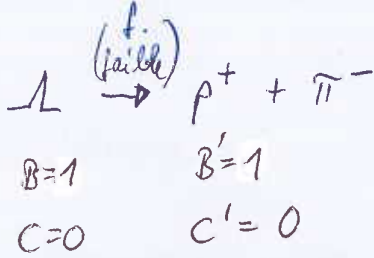 f.
(faible)
Λ → p⁺ + π⁻
B=1 B'=1
C=0 C'=0